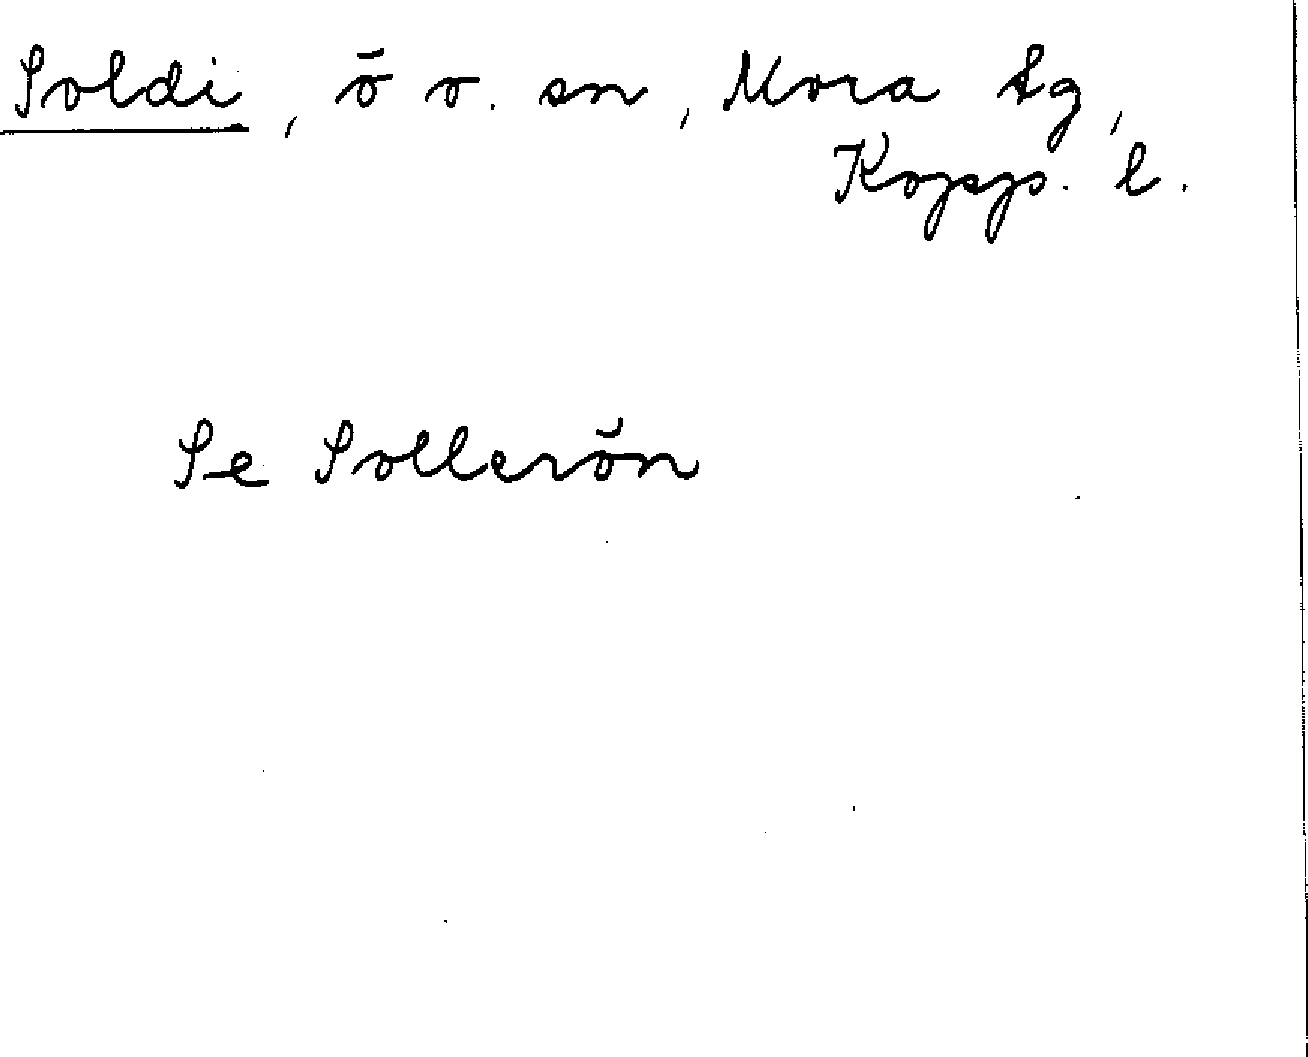 Soldi, ö o. sn, Mora tg,
Kopp. l.
Se Sollerön